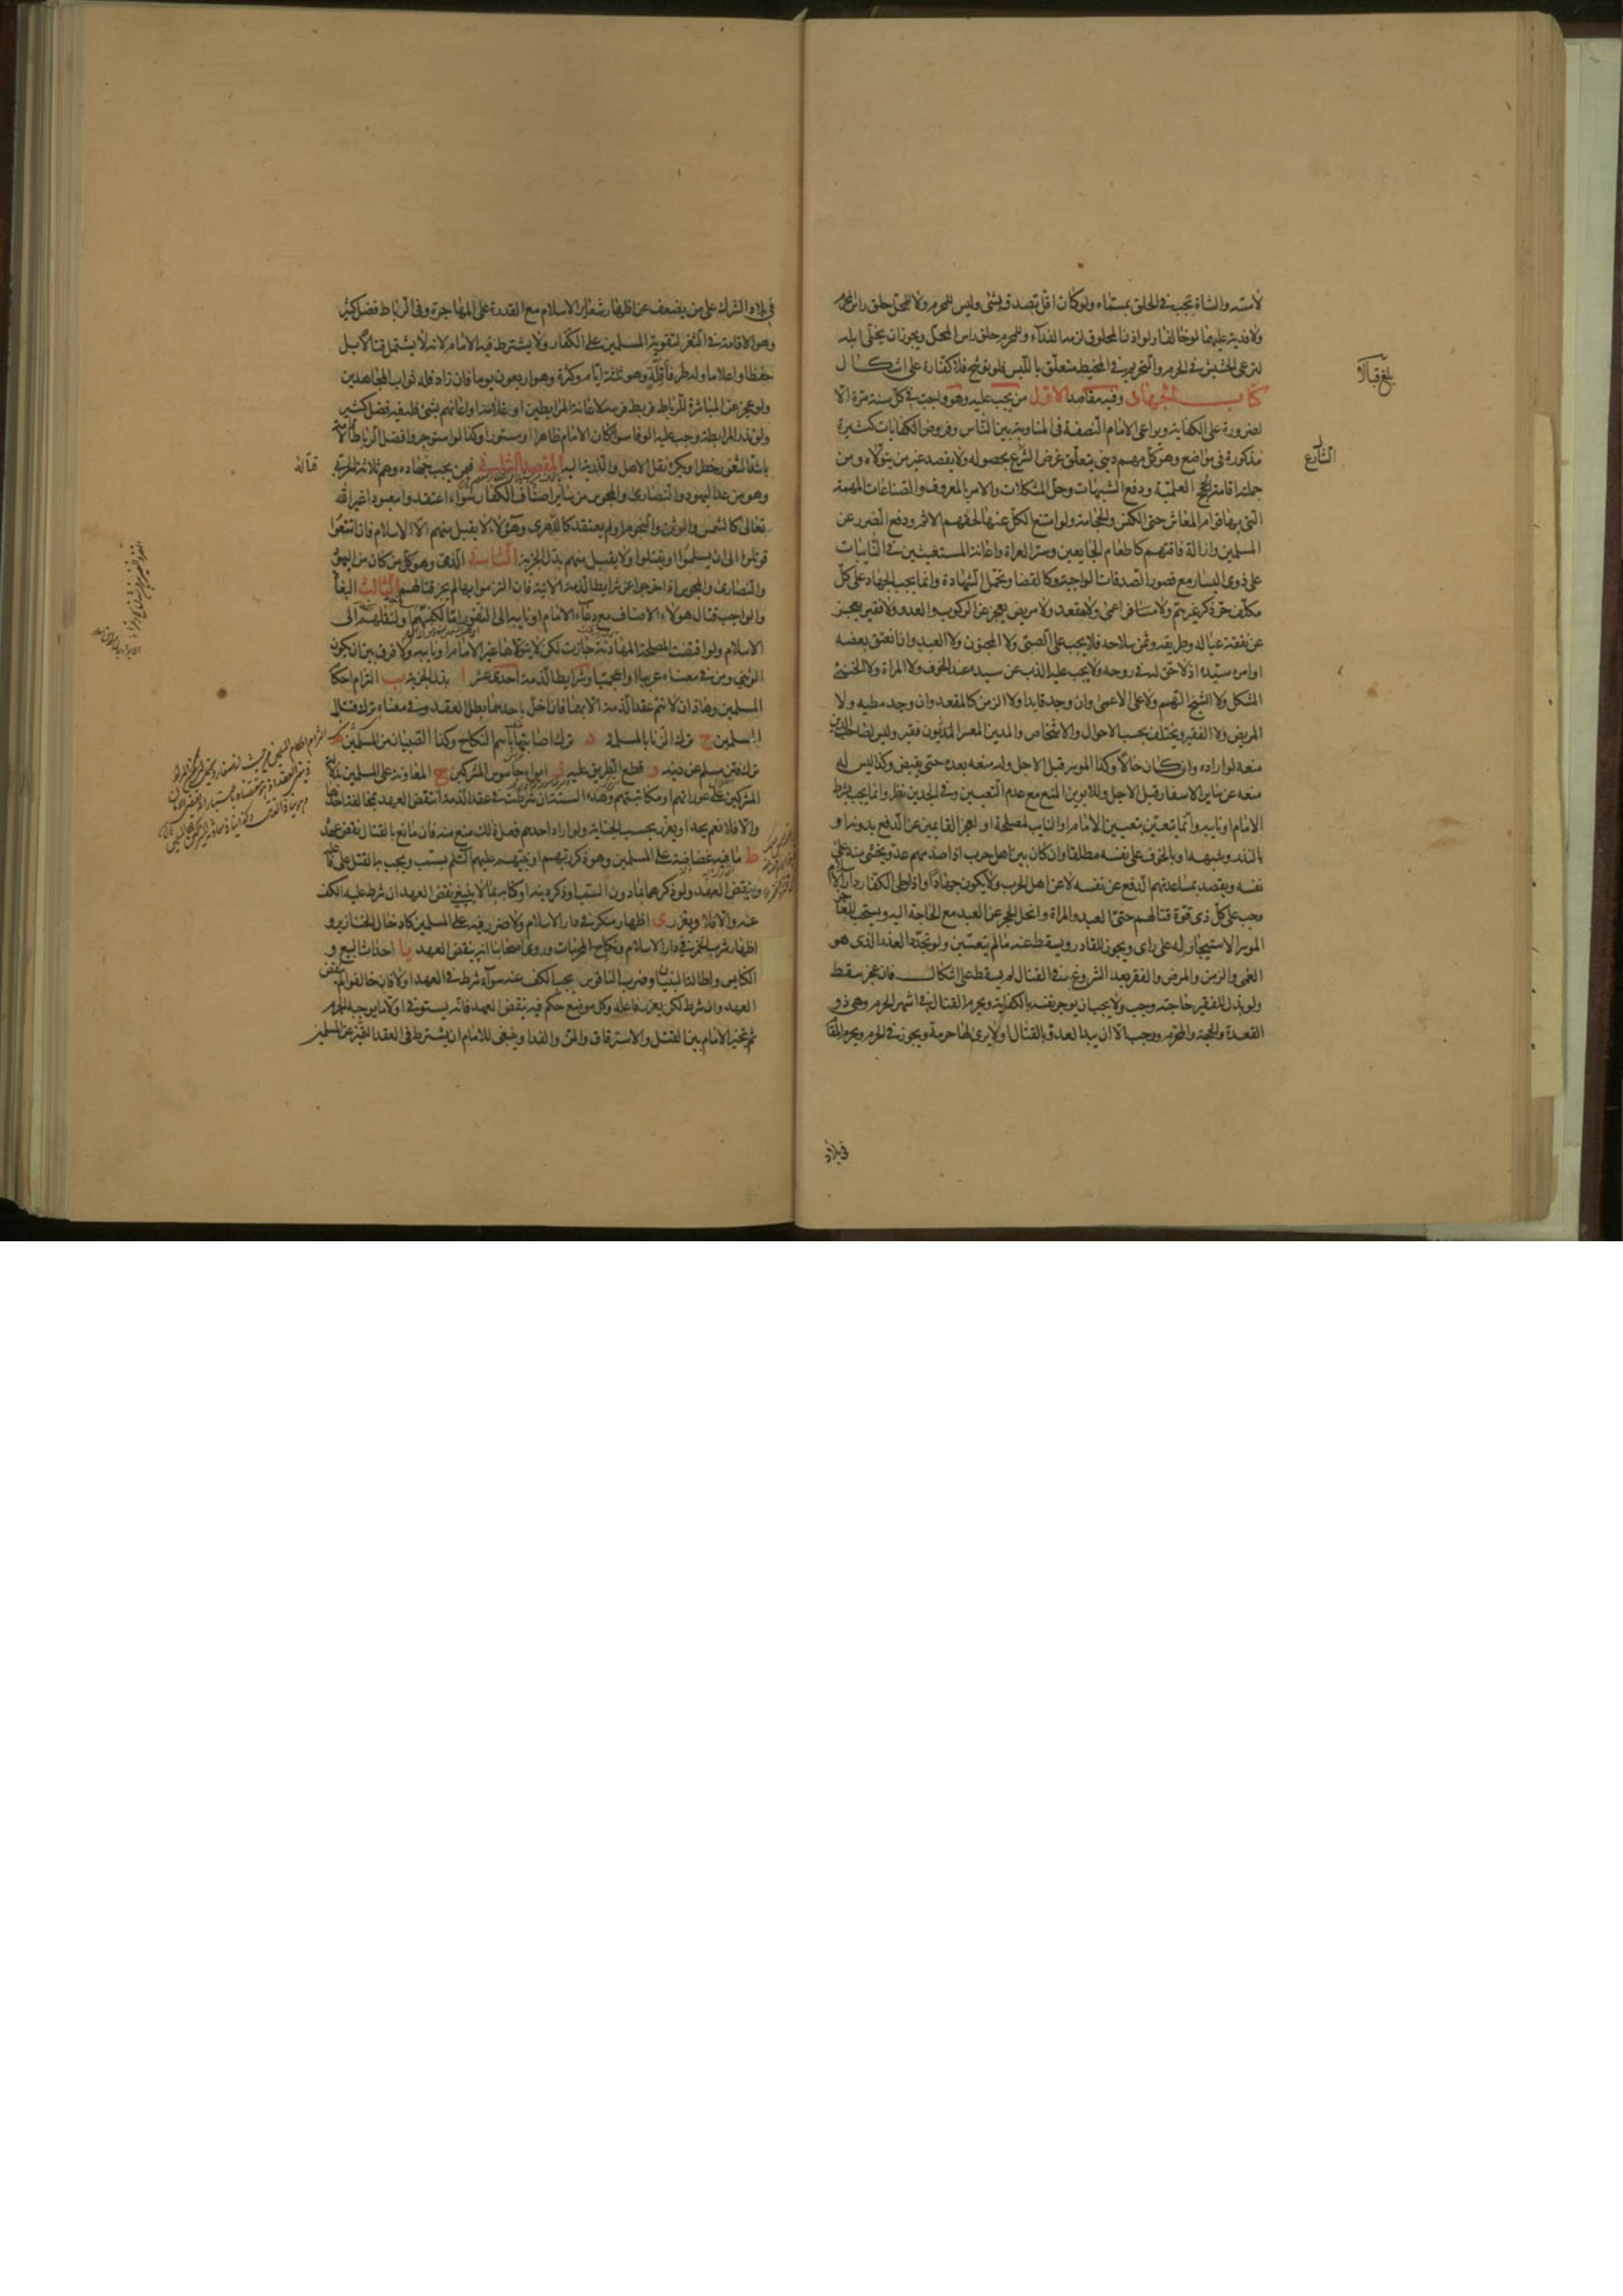 لاسته والشاة تجب في الحلق بمسماه ولو كان اقل تصدق بشئ وليس للمحرم ولا للمحل حلق راس محرم
ولا فدية عليهما لو خالفا ولو اذن المحلوق لزمه الفداء وللمحرم حلق راس المحل ويجوز ان يخلى ابله
لترعى الحشيش في الحرم والتحريم في المخيط متعلق باللبس فلو توشح فلا كفارة على اشكال
كتاب الجهاد وفيه مقاصد الاول من يجب عليه وهو واجب في كل سنة مرة الا
لضرورة على الكفاية ويراعى الامام النصفة في المناوبة بين الناس وفروض الكفايات كثيرة
مذكورة في مواضع وهو كل مهم ديني يتعلق غرض الشرع بحصوله ولا يقصد عين من يتولاه ومن
جملته اقامة الحجج العلمية ودفع الشبهات وحل المشكلات والامر بالمعروف والصناعات المهمة
التي بها قوام المعاش حتى الكنس والحجامة ولو امتنع الكل عنها لحقهم الاثم ودفع الضرر عن
المسلمين وازالة فاقتهم كاطعام الجايعين وستر العراة واعانة المستغيثين في النايبات
على ذوي اليسار مع قصور الصدقات الواجبة وكالقضا وتحمل الشهادة وانما يجب الجهاد على كل
مكلف حر ذكر غير هم ولا مسافر اعمى ولا مقعد ولا مريض يعجز عن الركوب والعدو ولا فقير يعجز
عن نفقة عياله وطريقه وثمن سلاحه فلا يجب على الصبي ولا المجنون ولا العبد وان انعتق بعضه
او امره سيده اذ لا حق له في روحه ولا يجب عليه الذب عن سيده عند الخوف ولا المراة ولا الخنثى
المشكل ولا الشيخ الهم ولا على الاعمى وان وجد قايدا ولا الزمن كالمقعد وان وجد مطيه ولا
المريض ولا الفقير ويختلف بحسب الاحوال والاشخاص والمدين المعسر المديون فقير وليس لصاحب الدين
منعه لو اراده وان كان حالا وكذا الموسر قبل الاجل وله منعه بعده حتى يقبض وكذا ليس له
منعه عن ساير الاسفار قبل الاجل وللابوين المنع مع عدم التعيين وفي الجدين نظر وانما يجب بشرط
الامام او نايبه وانما يتعين بتعيين الامام او النايب لمصلحة او لعجز القايمين عن الدفع بدونه او
بالنذر وشبهه او بالخوف على نفسه مطلقا وان كان بين اهل حرب اذا صدمهم عدو يخشى منه على
نفسه ويقصد بمساعدتهم الدفع عن نفسه لا عن اهل الحرب ولا يكون جهادا واذا وطئ الكفار دار الاسلام
وجب على كل ذي قوة قتالهم حتى العبد والمراة وانحل الحجر عن العبد مع الحاجة اليه ويستحب للعاجز
الموسر الاستيجار له على راى ويجوز للقادر ويسقط عنه ما لم يتعين ولو تجدد العذر الذي هو
العمى والزمن والمرض والفقر بعد الشروع في القتال لم يسقط على اشكال فان عجز سقط
ولو بذل للفقير حاجته وجب ولا يجب ان يوجر نفسه بالكفاية ويحرم القتال في اشهر الحرم وهي ذو
القعدة والحجة والمحرم ورجب الا ان يبدا العدو بالقتال او لا يرى لها حرمة ويجوز في الحرم ويحرم المقام
بلغ قبالا
الشارع
في بلاد
في بلاد الشرك على من يضعف عن اظهار شعاير الاسلام مع القدرة على المهاجرة وفي الرباط فضل كثير
وهو الاقامة في الثغر لتقوية المسلمين على الكفار ولا يشترط فيه الامام لانه لا يشتمل قتالا بل
حفظا واعلاما وله طرفا قلة وهو ثلثة ايام وكثرة وهو اربعون يوما فان زاد فله ثواب المجاهدين
ولو عجز عن المباشرة للرباط فربط فرسه لاعانة المرابطين او غلامه او اعانهم بشئ فله فيه فضل كثير
ولو نذر المرابطة وجب عليه الوفا سوا كان الامام ظاهرا او مستورا وكذا لو استوجر وافضل الرباط الاقامة
باشد الثغور خطرا ويكره نقل الاهل والذرية اليه المقصد الثاني فيمن يجب جهاده وهم ثلاثة الحربي
قتاله
وهو من عدا اليهود والنصارى والمجوس من ساير اصناف الكفار سواء اعتقد وا معبودا غير الله
تعالى كالشمس والوثن والنجوم او لم يعتقد كالدهري وهؤلاء لا يقبل منهم الا الاسلام فان امتنعوا
قوتلوا الى ان يسلموا او يقتلوا ولا يقبل منهم بذل الجزية الثاني الذمي وهو كل من كان من اليهود
والنصارى والمجوس اذا خرجوا عن شرايط الذمة الاتية فان التزموا بها لم يجز قتالهم الثالث البغاة
والواجب قتال هولاء الاصناف مع دعاء الامام او نايبه الى النفور اما لكفهم او لنقلهم الى
الاسلام ولو اقتضت المصلحة المهادنة جازت لكن لا يتولاها غير الامام او نايبه ولا فرق بين ان يكون
الوثني ومن في معناه عربيا او اعجميا وشرايط الذمة احدى عشر ا بذل الجزية ب التزام احكام
المسلمين وهاذان لا تتم عقد الذمة الا بهما فان اخل باحدهما بطل العقد وفي معناه ترك قتال
المسلمين ج ترك الزنا بالمسلمة د ترك اصابتها باسم النكاح وكذا الصبيان من المسلمين ه
ترك فتن مسلم عن دينه و قطع الطريق عليه ز ايواء جاسوس المشركين ح المعاونة على المسلمين بدلالة
المشركين على عوراتهم او مكاتبتهم وهذه الستة ان شرطت في عقد الذمة انتقض العهد بمخالفة احدها
والا فلا نعم يحد او يعزر بحسب الجناية ولو اراد احدهم فعل ذلك منع منه فان مانع بالقتال نقض عهده
ط ما فيه غضاضة على المسلمين وهو ذكر ربهم او نبيهم عليه السلم بسب ويجب به القتل على فاعله
وينقض العهد ولو ذكرهما بما دون السب او ذكر دينه او كتابه بما لا ينبغي نقض العهد ان شرط عليه الكف
عنه والا فلا ويعزر ى اظهار منكر في دار الاسلام ولا ضرر فيه على المسلمين كادخال الخنازير و
اظهار شرب الخمر في دار الاسلام ونكاح المحرمات وروى اصحابنا انه ينقض العهد يا احداث البيع و
الكنايس واطالة البنيان وضرب الناقوس يجب الكف عنه سواء شرط في العهد او لا فان خالفوا لم ينتقض
العهد وان شرط لكن يعزر فاعله وكل موضع حكم فيه بنقض العهد فانه يستوفى اولا ما يوجبه الجرم
ثم يتخير الامام بين القتل والاسترقاق والمن والفدا وينبغي للامام ان يشترط في العقد التميز عن المسلمين